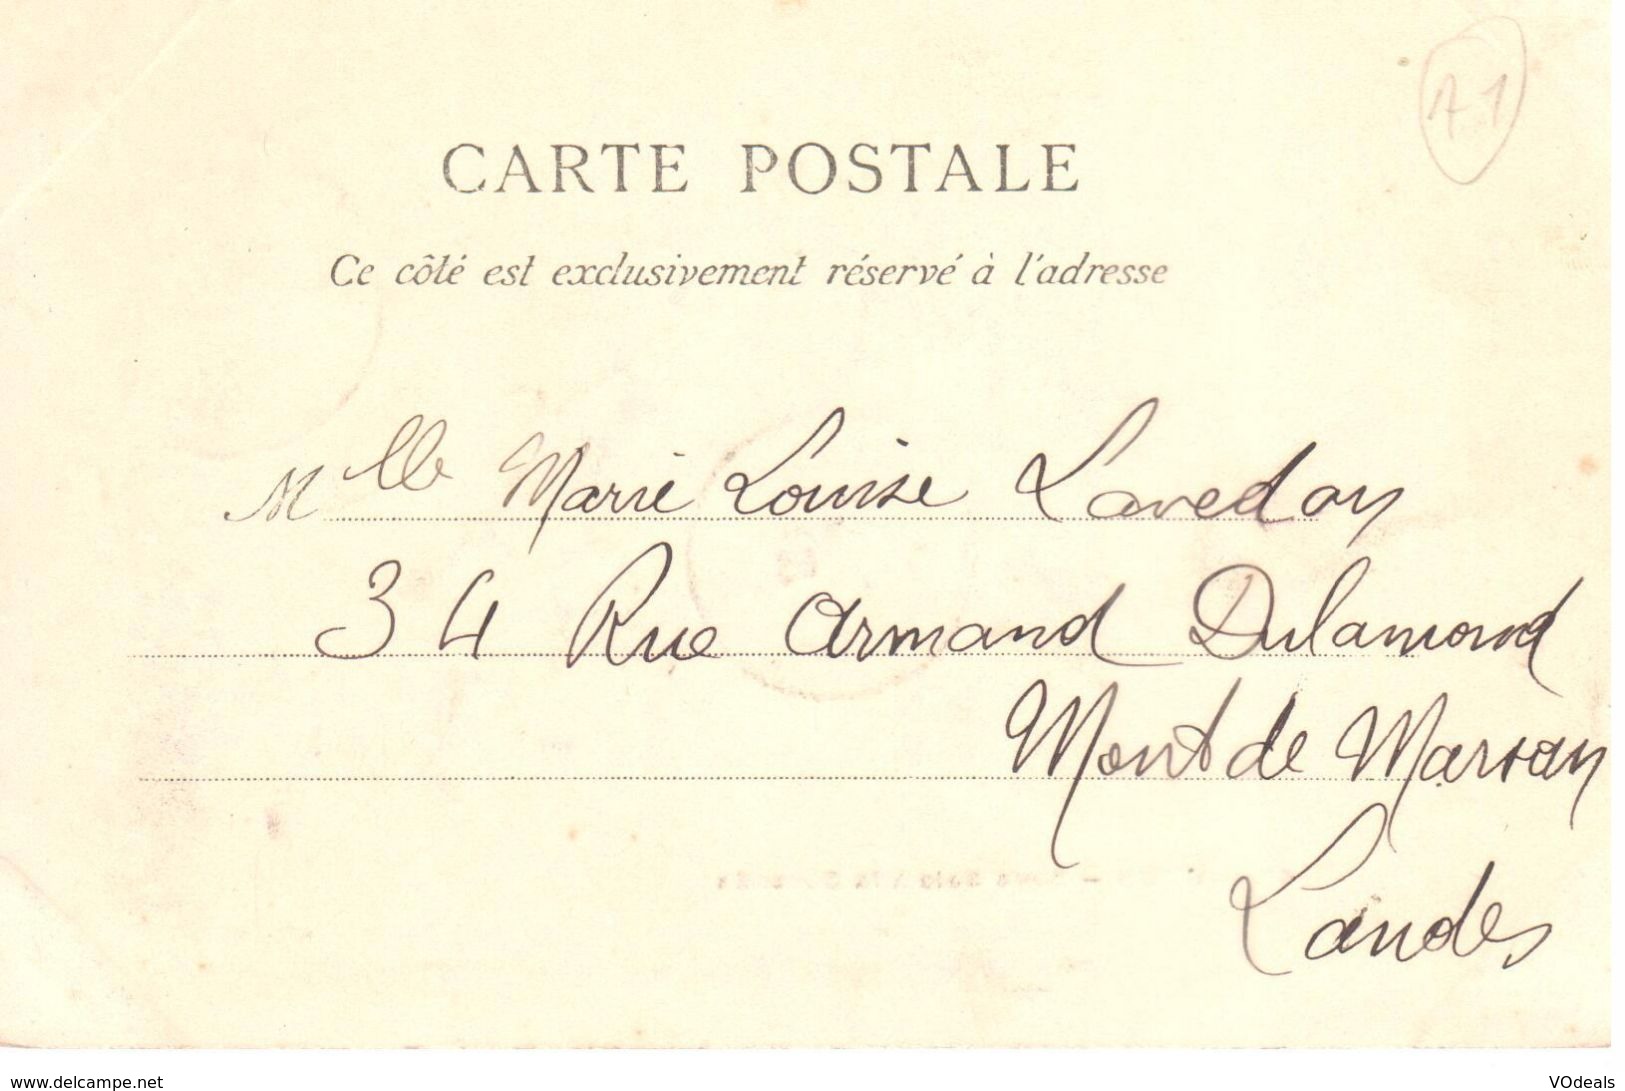 A1
CARTE POSTALE
Ce côté est exclusivement réservé à l'adresse
Mlle Marie Louise Lavedan
34 Rue Armand Dulamond
Mont de Marsan
Landes
www.delcampe.net
VOdeals